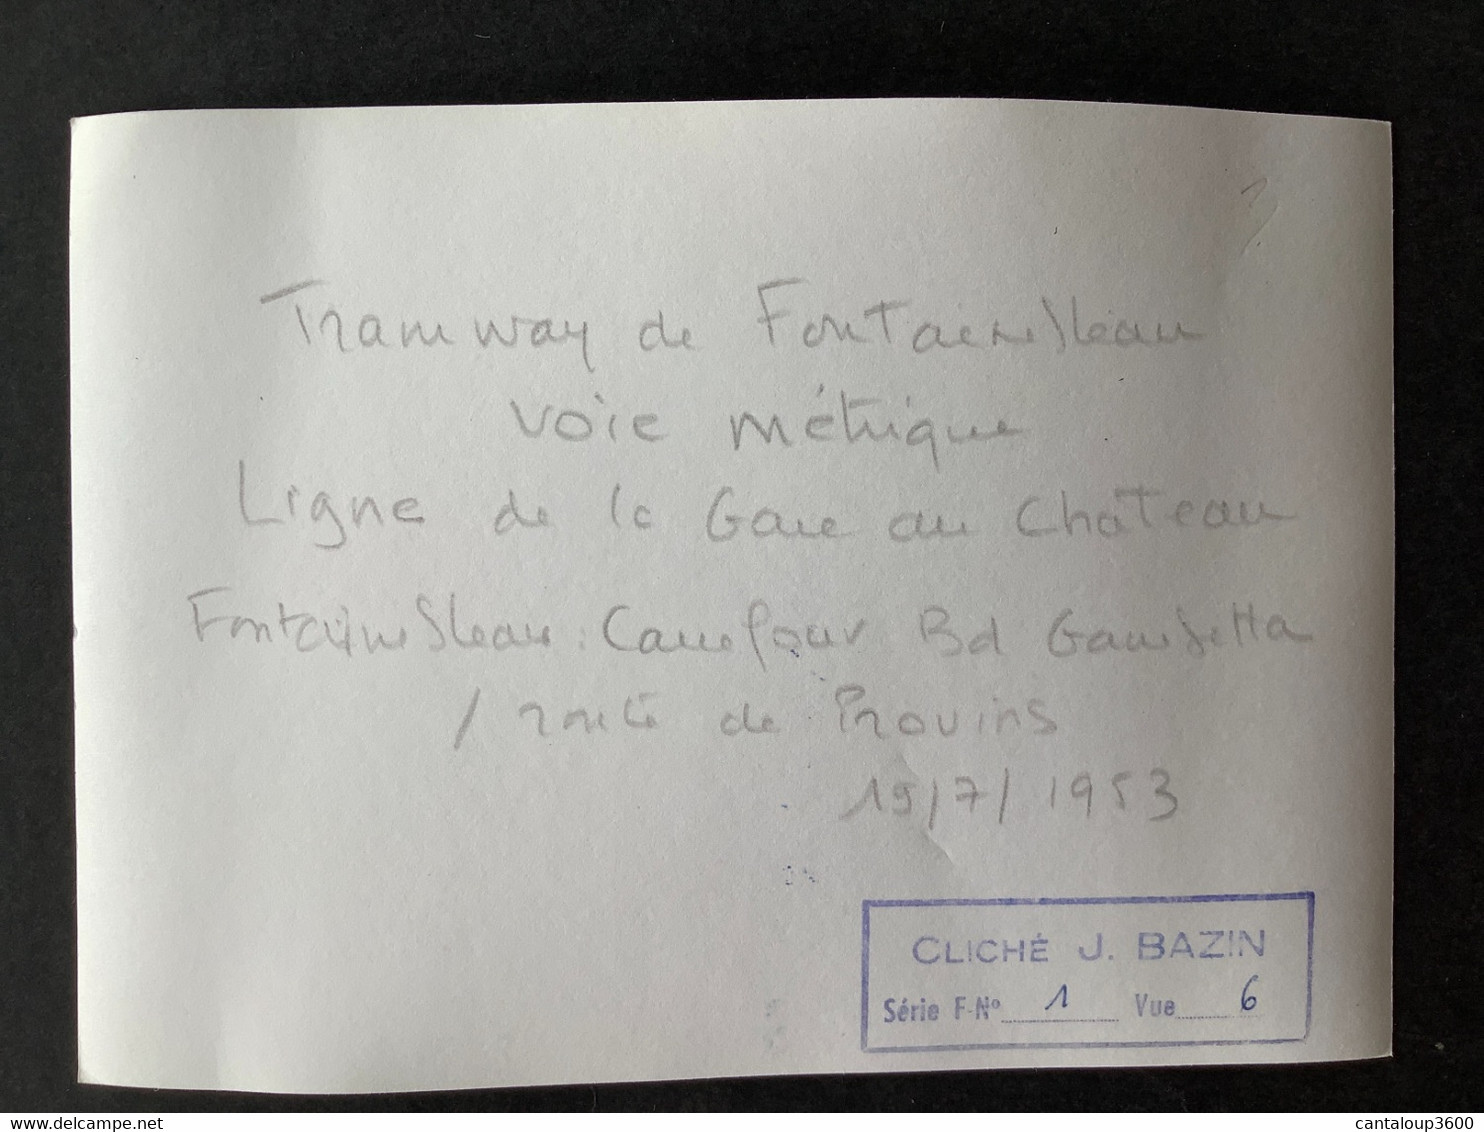 Tramway de Fontainebleau
voie métrique
Ligne de la Gare au Château
Fontainebleau : Carrefour Bd Gambetta
/ route de Provins
15/7/1953
CLICHÉ J. BAZIN
Série F-N° 1 Vue 6
delcampe.net
cantaloup3600